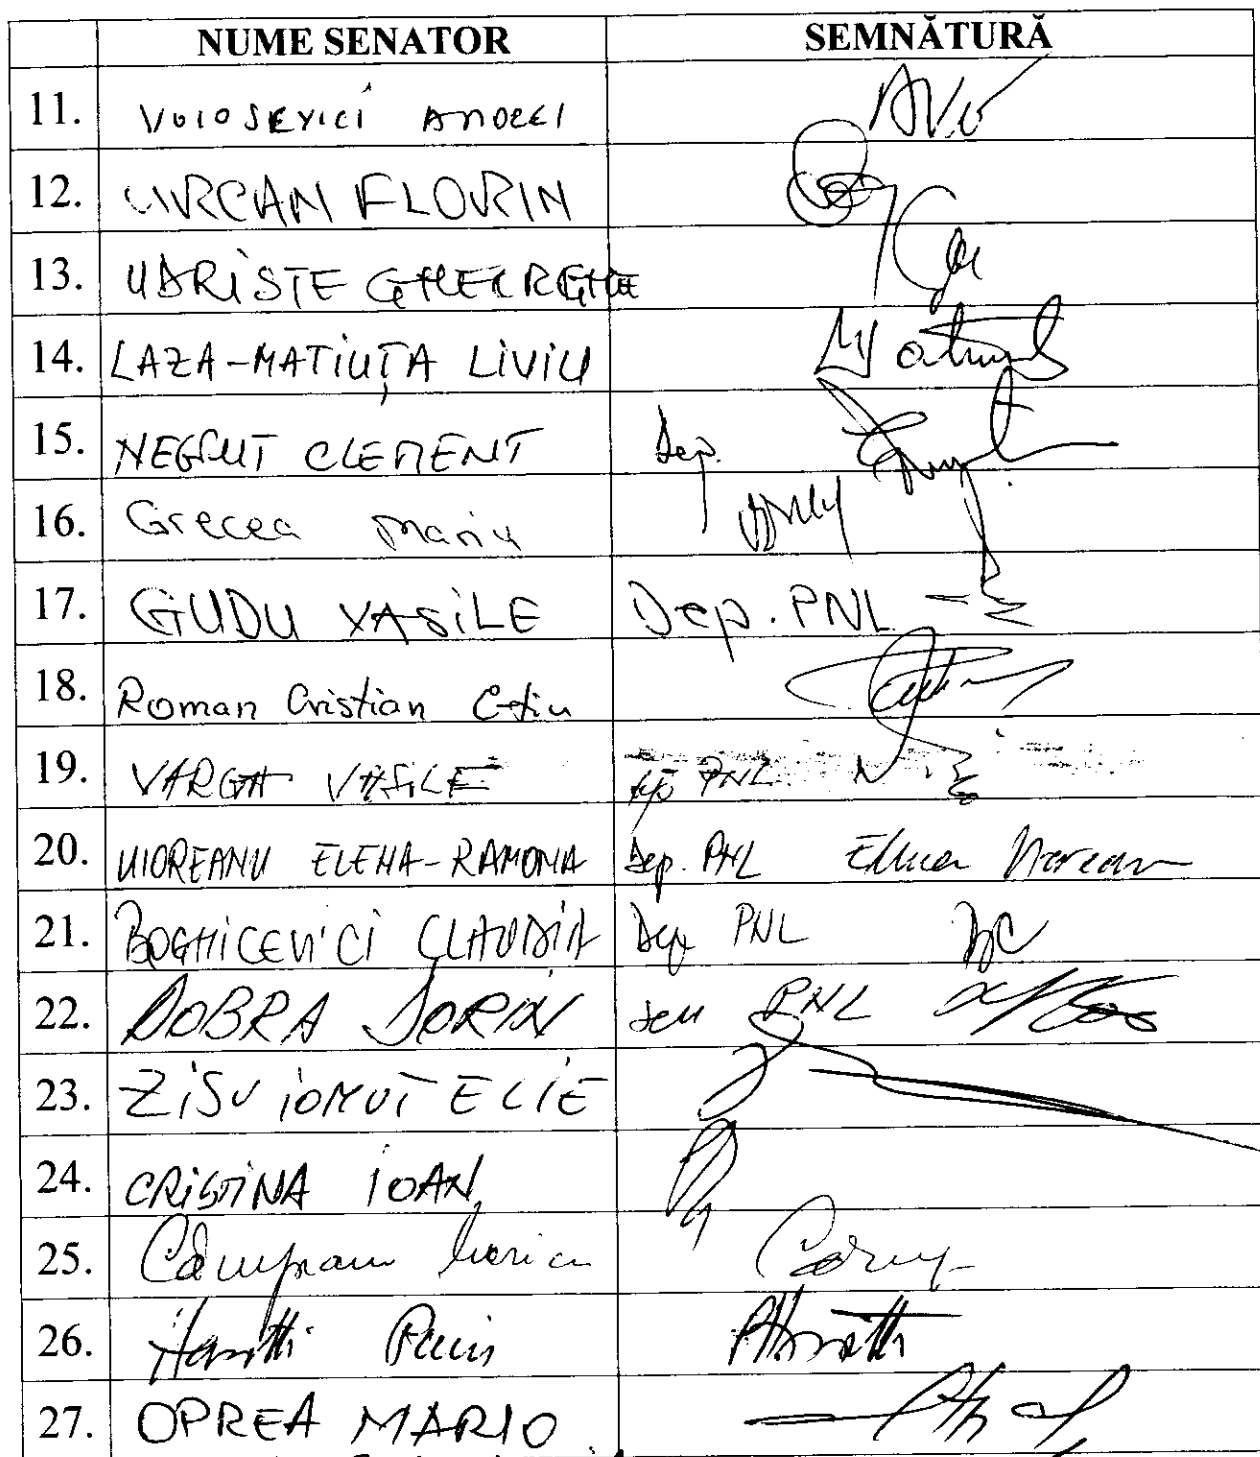 NUME SENATOR SEMNĂTURĂ
11. VOLOSEVICI ANDREI
12. URCAN FLORIN
13. UDRISTE GHEORGHE
14. LAZA-MATIUȚA LIVIU
15. NEGRUT CLEMENT Dep.
16. Grecea Maria
17. GUDU VASILE Dep. PNL
18. Roman Cristian
19. VARGA VASILE PNL
20. UIOREANU ELENA-RAMONA Dep. PNL
21. BOGHICEVICI CLAUDIA Dep PNL
22. DOBRA DORIN sen PNL
23. ZISU IONUT ELIE
24. CRISTINA IOAN
25. Câmpeanu
26.
27. OPREA MARIO